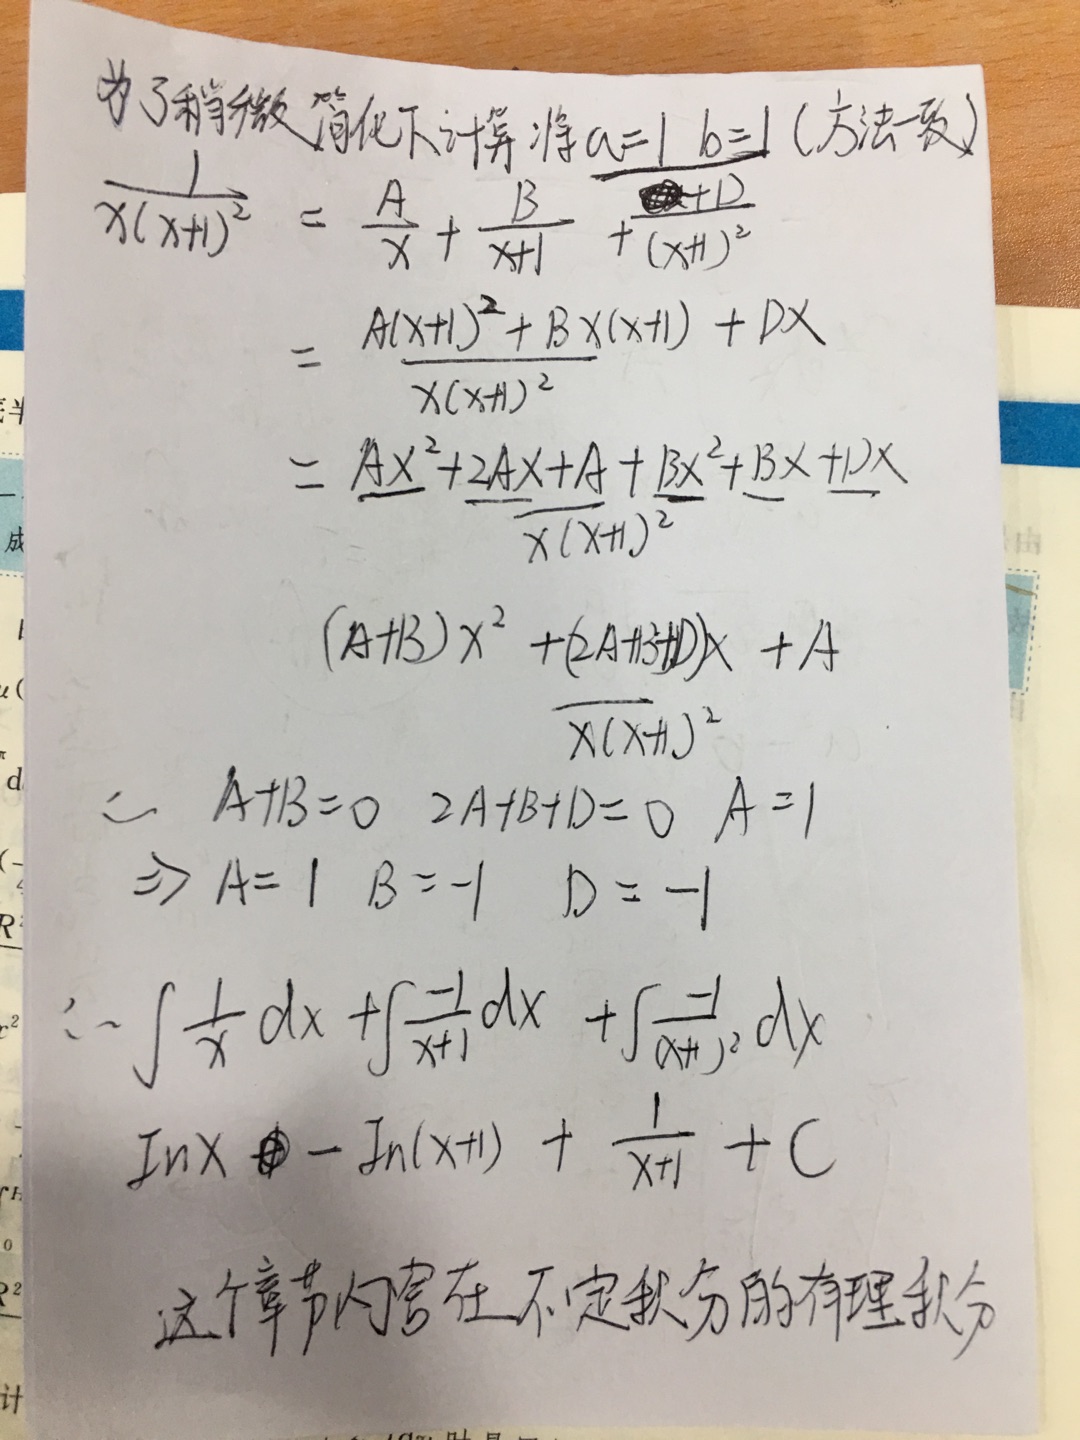 为了稍微简化下计算将a=1 b=1(方法一致)
1/(x(x+1)²) = A/x + B/(x+1) + +D/(x+1)²
= (A(x+1)²+Bx(x+1)+Dx)/(x(x+1)²)
= (Ax²+2Ax+A+Bx²+Bx+Dx)/(x(x+1)²)
((A+B)x²+(2A+B+D)x+A)/(x(x+1)²)
∴ A+B=0 2A+B+D=0 A=1
⇒ A=1 B=-1 D=-1
∴ ∫1/x dx + ∫-1/(x+1) dx + ∫-1/(x+1)² dx
Inx - In(x+1) + 1/(x+1) + C
这个章节内容在不定积分的有理积分
成
d
R²
R²
计